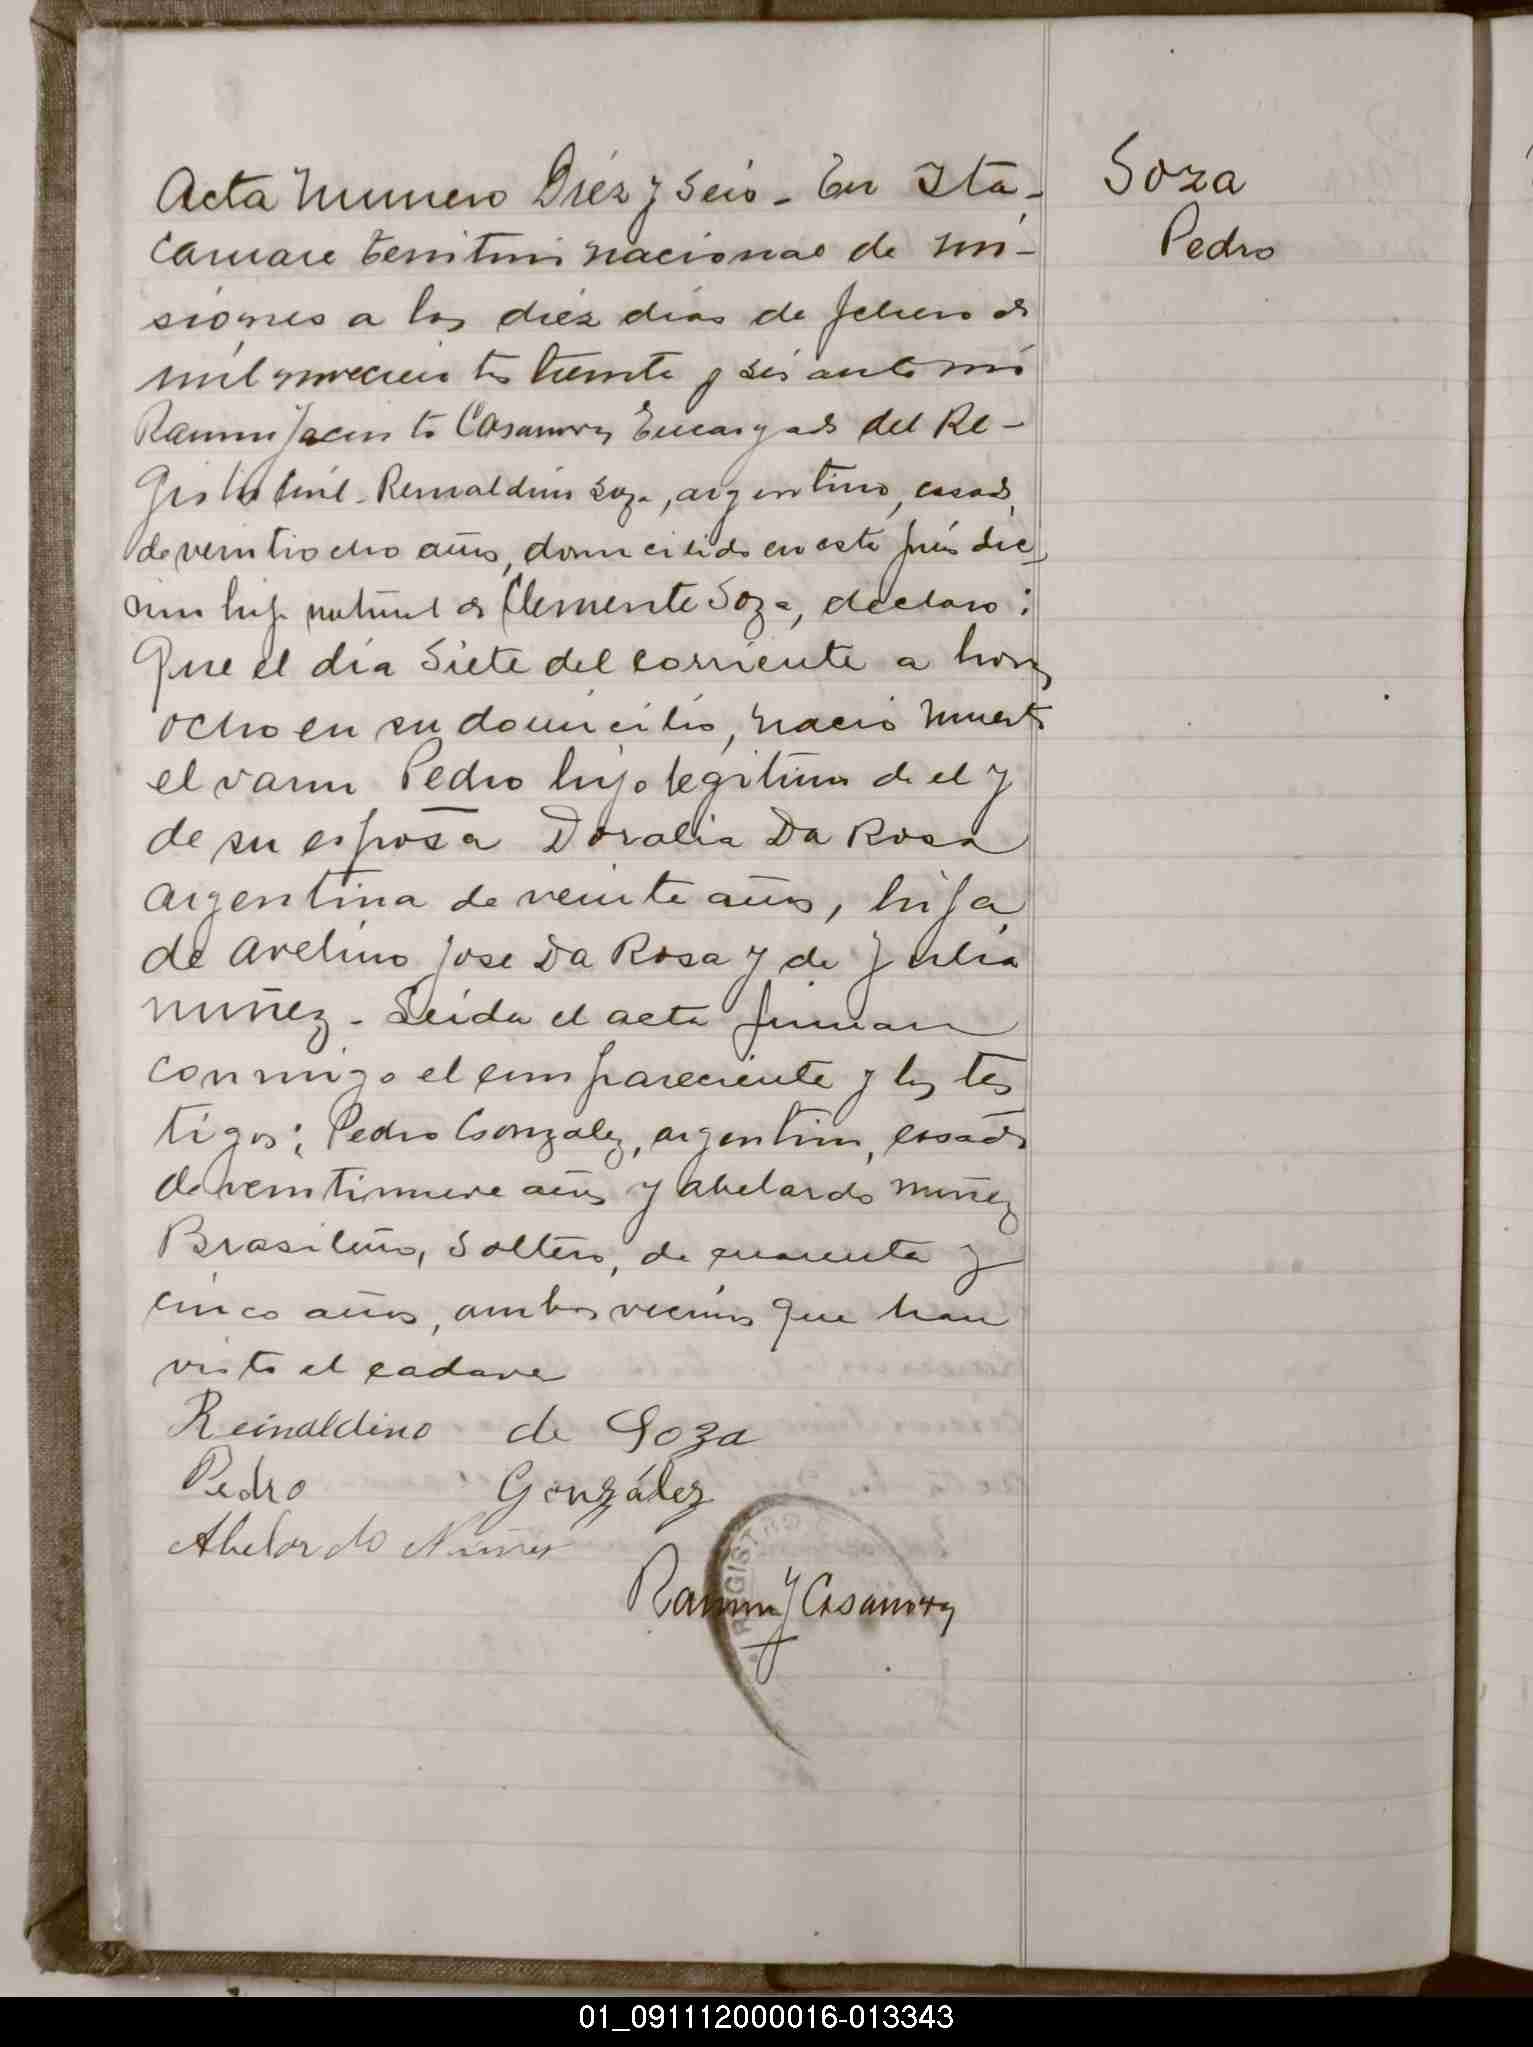 Acta Numero Diéz y Seis - En Ita-
caruare territorio nacional de Mi-
siones a los diéz dias de febrero de
mil novecientos treinta y seis ante mi
Ramon Jacinto Casanova Encargado del Re-
gistro Civil - Reinaldino Soza, argentino, casado,
de veintiocho años, domiciliado en esta jurisdic-
cion hijo natural de Clemente Soza, declaro:
Que el dia Siete del corriente a horas
ocho en su domicilio, nacio muerto
el varon Pedro hijo legitimo de el y
de su esposa Doralia Da Rosa
argentina de veinte años, hija
de Avelino Jose Da Rosa y de Julia
Nuñez - Leida el acta firman
conmigo el compareciente y los tes
tigos: Pedro Gonzalez, argentino, casado
de veintinueve años y Abelardo Nuñez
Brasileño, Soltero, de cuarenta y
cinco años, ambos vecinos que han
visto el cadaver
Reinaldino de Soza
Pedro González
Abelardo Nuñez
Ramon J Casanova
REGISTRO
Soza
Pedro
01_091112000016-013343